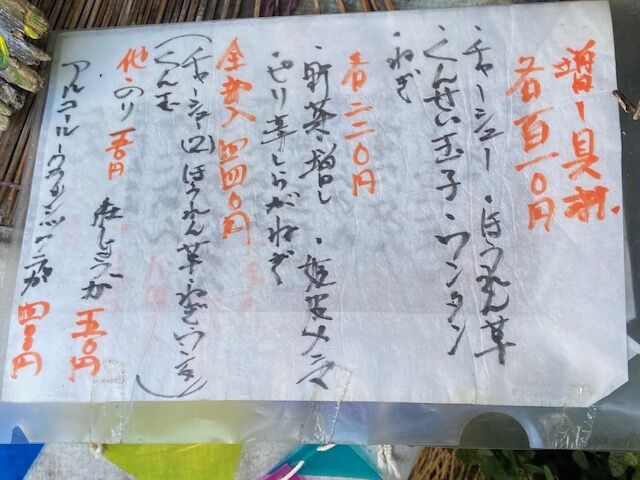 増し具材
各百一〇円
・チャーシュー・ほうれん草
・くんせい玉子・ワンタン
・ねぎ
各二二〇円
・野菜増し・姫皮メンマ
・ピリ辛しらがねぎ
全部入四四〇円
（チャーシュー(2)ほうれん草・ねぎ・ワンタン
くん玉）
他・のり 五〇円
紅しょうが 五〇円
アルコール
四〇〇円